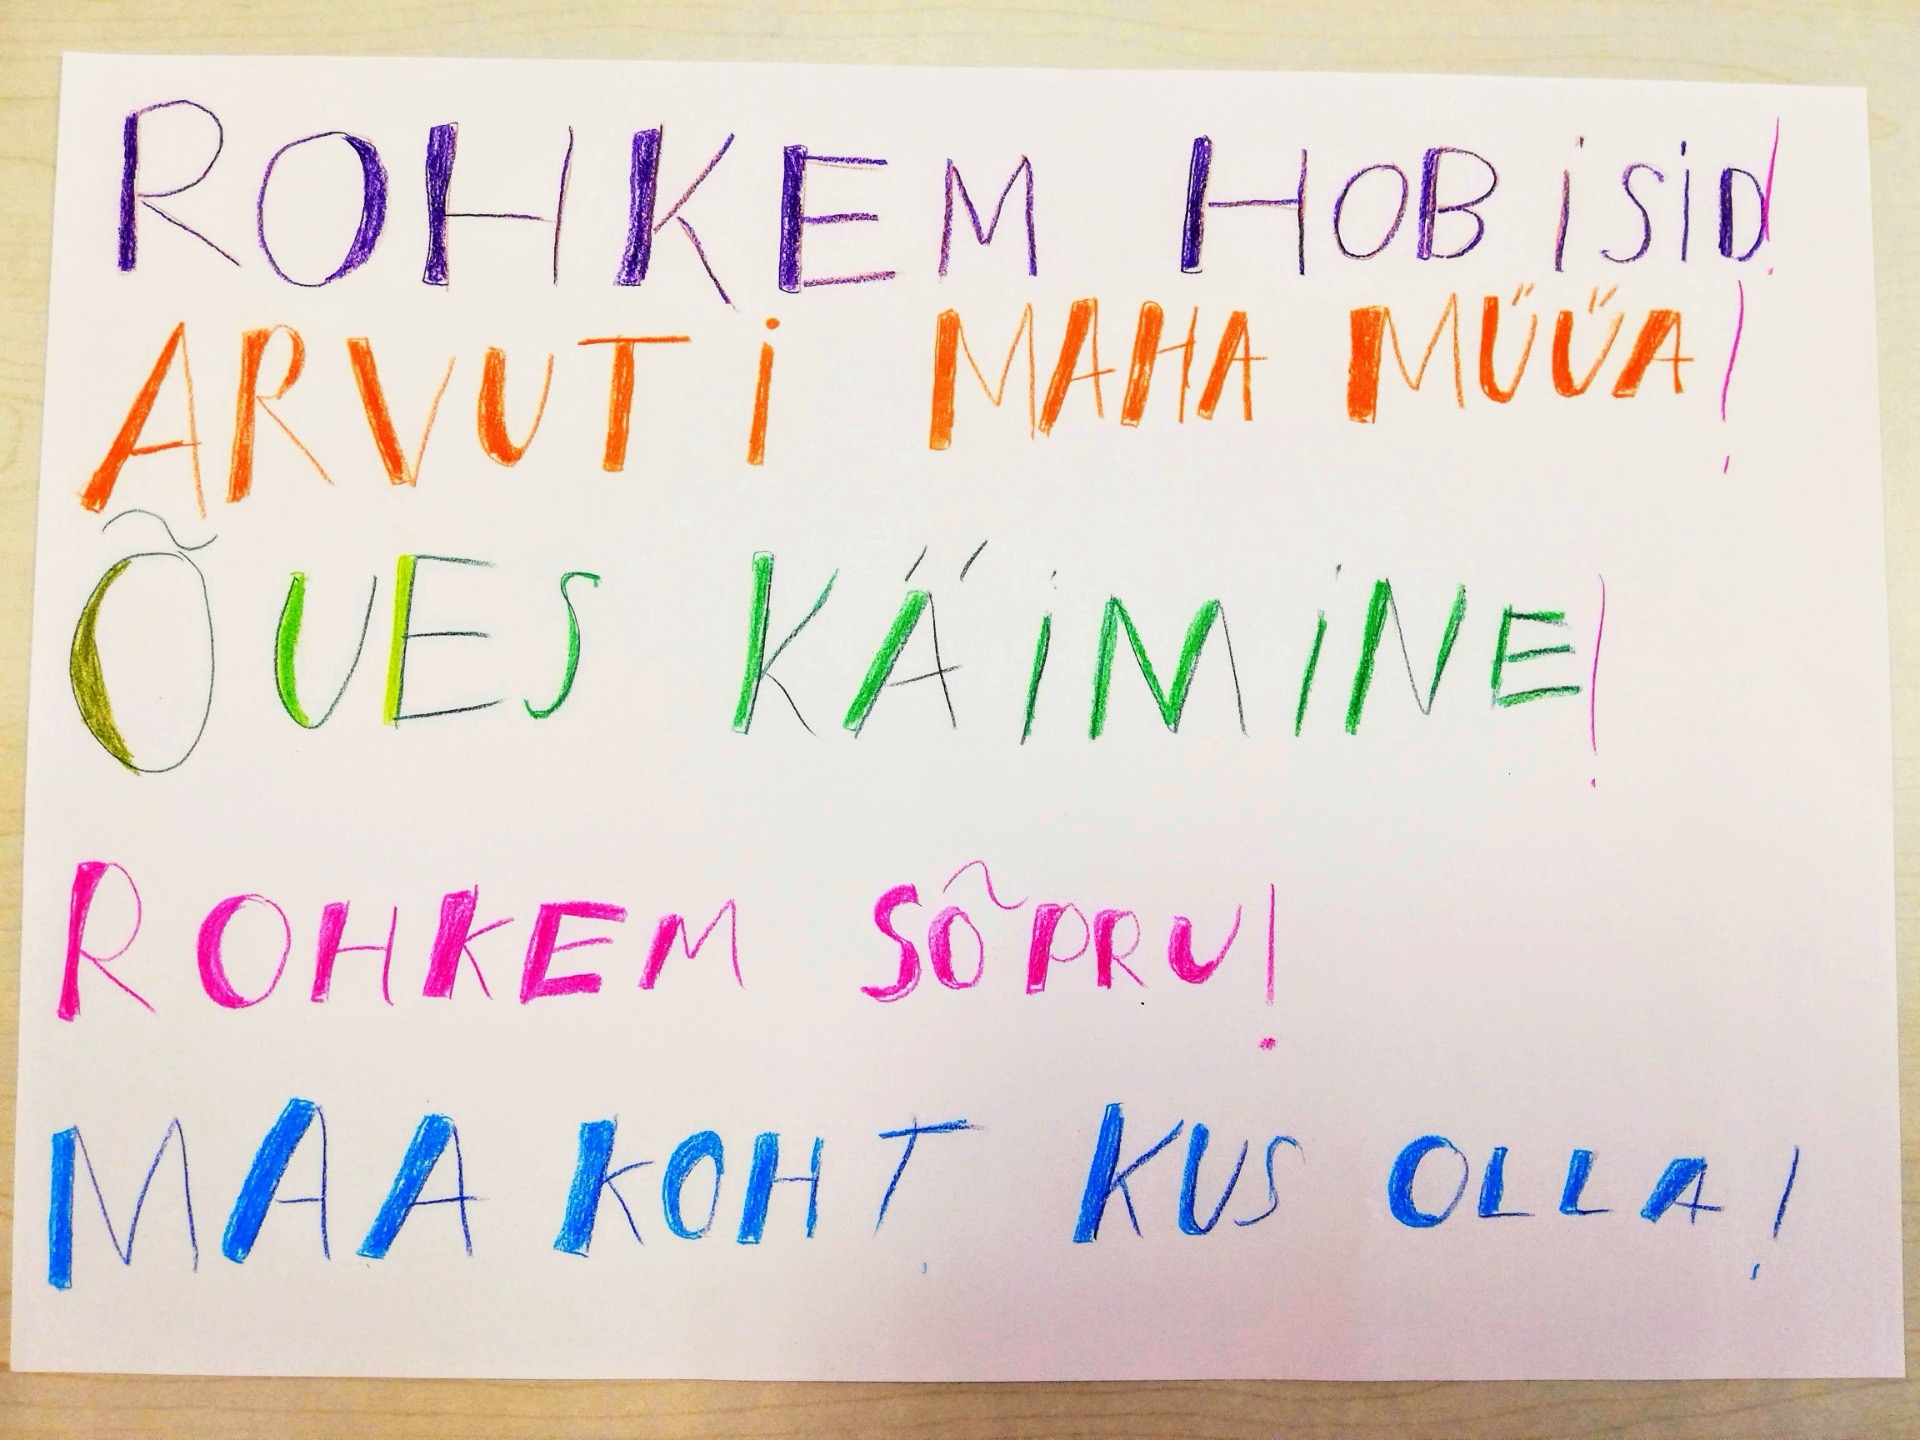 ROHKEM HOBiSiD!
ARVUTi MAHA MÜÜA!
ÕUES KÄiMiNE!
ROHKEM SÕPRU!
MAA KOHT, KUS OLLA!